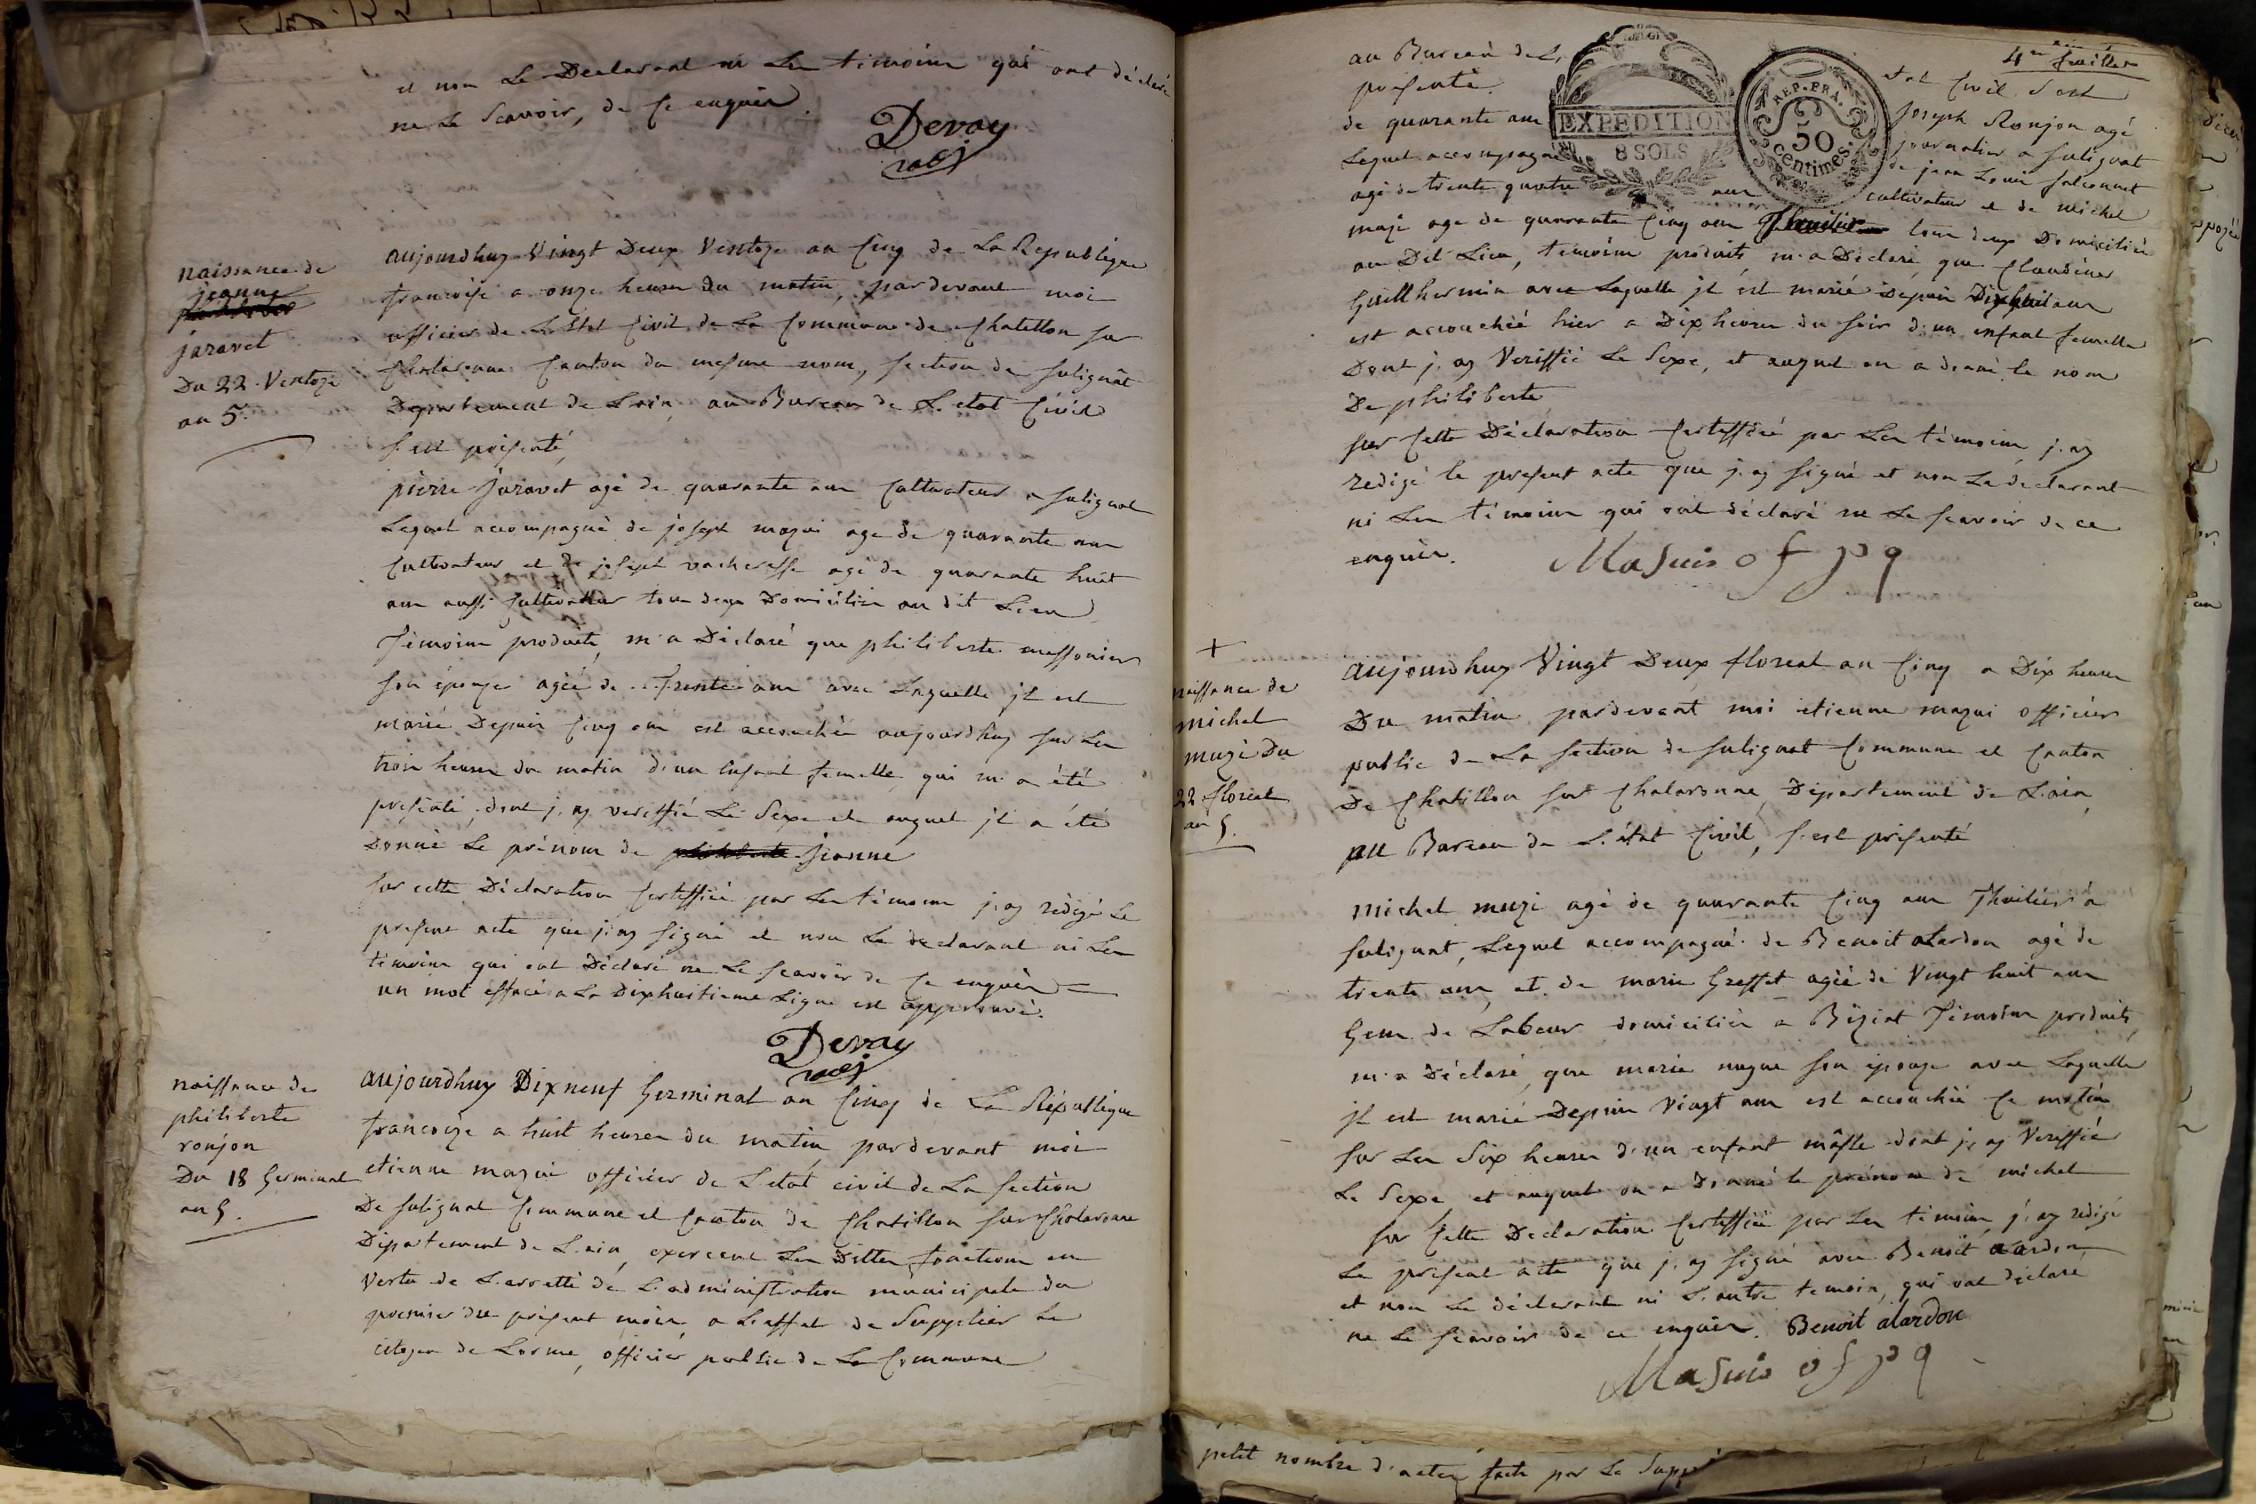 et non Le Declarant ni Les témoins qui ont déclaré
ne Le Scavoir, de Ce enquis.
Devay
naissance de
jeanne
jaravet
Du 22 Ventoze
an 5.
aujourdhuy Vingt Deux Ventoze an Cinq de La Republique
francoise a onze heures du matin, pardevant moi
officier de L.Etat Civil de La Commune de Chatillon sur
Chalaronne Canton du mesme nom, section de sulignat
Departement de Lain, au Bureau de L.etat Civil
s.est présenté,
pierre jaravet agé de quarante ans Cultivateur a sulignat
Lequel accompagné de joseph mazui age de quarante ans
Cultivateur et de joseph vacheresse agé de quarante huit
ans aussi Cultivateur tous deux Domiciliés au dit Lieu
Témoins produits, m.a Déclaré que philiberte messonier
son épouze agée de trente ans avec Laquelle jl est
marié Depuis Cinq ans est accouchée aujourdhuy sur Les
trois heures du matin d.un Enfant femelle, qui m.a été
présenté, dont j.ay veriffié Le Sexe et auquel jl a été
Donné Le prénom de jeanne
sur cette Déclaration Certiffiée par Les témoins j.ay rédigé Le
présent acte que j.ay signé et non Le declarant ni Les
témoins qui ont Déclaré ne Le scavoir de Ce enquis
un mot effacé a La Dixhuitieme Ligne est approuvé.
Devay
naissance de
philiberte
ronjon
Du 18 Germinal
an 5.
aujourdhuy Dixneuf Germinal an Cinq de La République
francoize a huit heures du matin, pardevant moi
etienne mazui officier de L.etat civil de La section
De sulignat Commune et Canton de Chatillon sur Chalaronne
Département de L.ain, exercent Les Dittes fonctions en
Vertu de L.arretté de L.administration municipale du
premier du présent mois, a L.effet de Supplier Le
citoyen de Lorme, officier public de La Commune
4me feuillet
EXPEDITION
8 SOLS
REP. FRA.
50
centimes.
au Bureau de L. etat Civil s.est
présenté. joseph Ronjon agé
de quarante ans journalier a sulignat
Lequel accompagné de jean Louis falconnet
agé de trente quatre ans cultivateur et de michel
muzi age de quarante Cinq ans Thuilier tous deux Domiciliés
au Dit Lieu, témoins produits, m.a Déclaré que Claudine
Guillhermin avec Laquelle jl est marié Depuis Dixhuit ans
est accouchée hier a Dix heures du soir d.un enfant femelle
Dont j.ay Veriffié Le Sexe, et auquel on a donné le nom
De philiberte
sur Cette Déclaration Certiffiée par Les témoins, j.ay
redigé le présent acte que j.ay signé et non Le declarant
ni Les témoins qui ont déclaré ne Le scavoir de ce
enquis.
Masuis of pq
naissance de
michel
muzi Du
22 floreal
an 5.
aujourdhuy Vingt Deux floreal an Cinq a Dix heures
Du matin pardevant moi etienne mazui officier
public de La section de sulignat Commune et Canton
De Chatillon sur Chalaronne, Département de L.ain,
au Bureau de L.état Civil, s.est présenté
michel muzi agé de quarante Cinq ans Thuilier à
sulignat, Lequel accompagné de Benoit alardon agé de
trente ans, et de marie Greffet agée de Vingt huit ans
Gens de Labeur domiciliés a Biziat Témoins produits,
m.a Déclaré que marie nugue son épouze avec Laquelle
jl est marié Depuis Vingt ans est accouchée Ce matin
sur Les Six heures d.un enfant mâsle dont j.ay Veriffié
Le Sexe et auquel on a Donné le prénom de michel
sur Cette Declaration Certiffiée par Les témoins j.ay redigé
Le présent acte que j.ay signé avec Benoit alardon
et non Le déclarant ni L.autre temoin, qui ont déclaré
ne Le scavoir de ce enquis. Benoit alardon
Masuis of pq
petit nombre d.actes faits par Le Supp